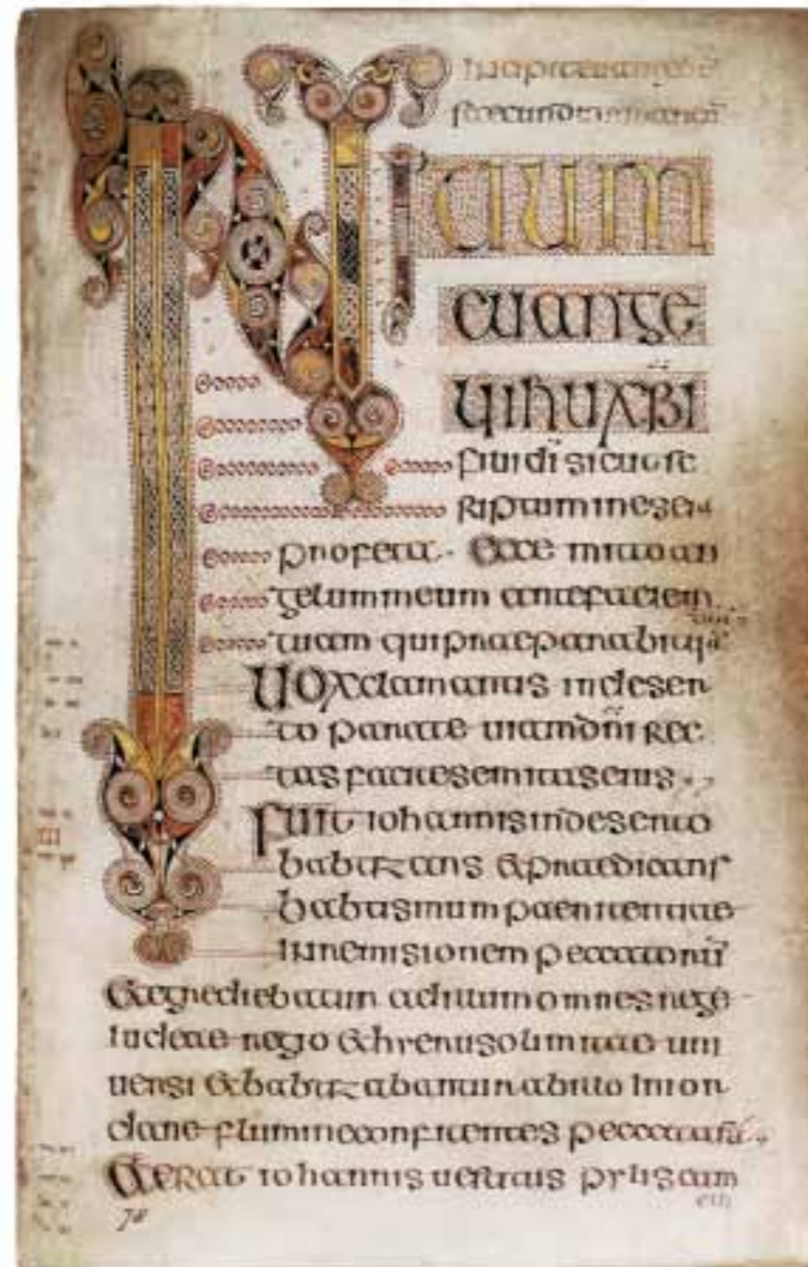 secundum marcū
INITIUM
euange
lii ihu xpi
filii dī sicut sc
riptum in eseia
profeta · Ecce mitto an
gelum meum ante faciem
tuam qui praeparabit
Uox clamantis in deser
to parate uiam dni rec
tas facite semitas
Fuit iohannis in deserto
babtizans & praedicans
babtismum paenitentiae
in remisionem peccatorū
& egrediebatur ad illum omnes
iudeae regio & hyerusolimitae uni
uersi & babtizabantur ab illo in ior
dane flumine confitentes peccata
& erat iohannis uestitus pylis cam